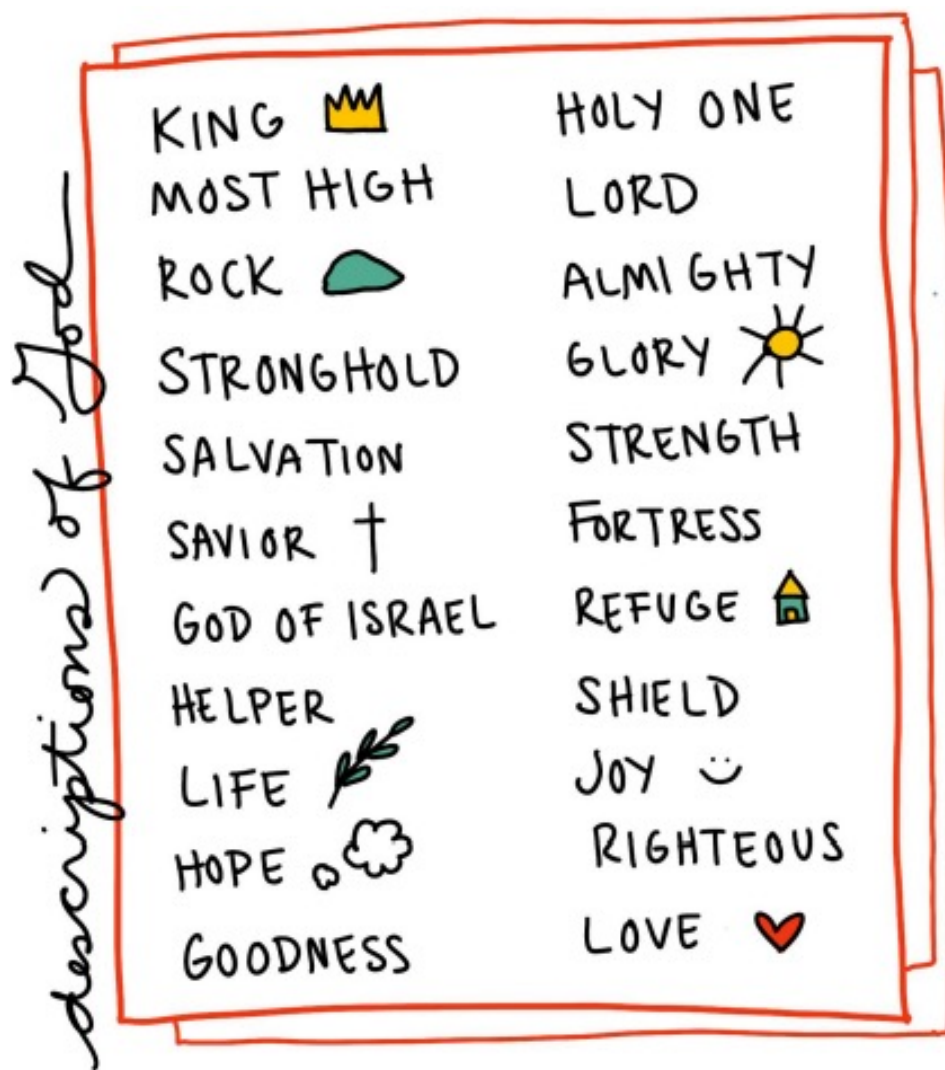 descriptions of God
KING
MOST HIGH
ROCK
STRONGHOLD
SALVATION
SAVIOR
GOD OF ISRAEL
HELPER
LIFE
HOPE
GOODNESS
HOLY ONE
LORD
ALMIGHTY
GLORY
STRENGTH
FORTRESS
REFUGE
SHIELD
JOY
RIGHTEOUS
LOVE